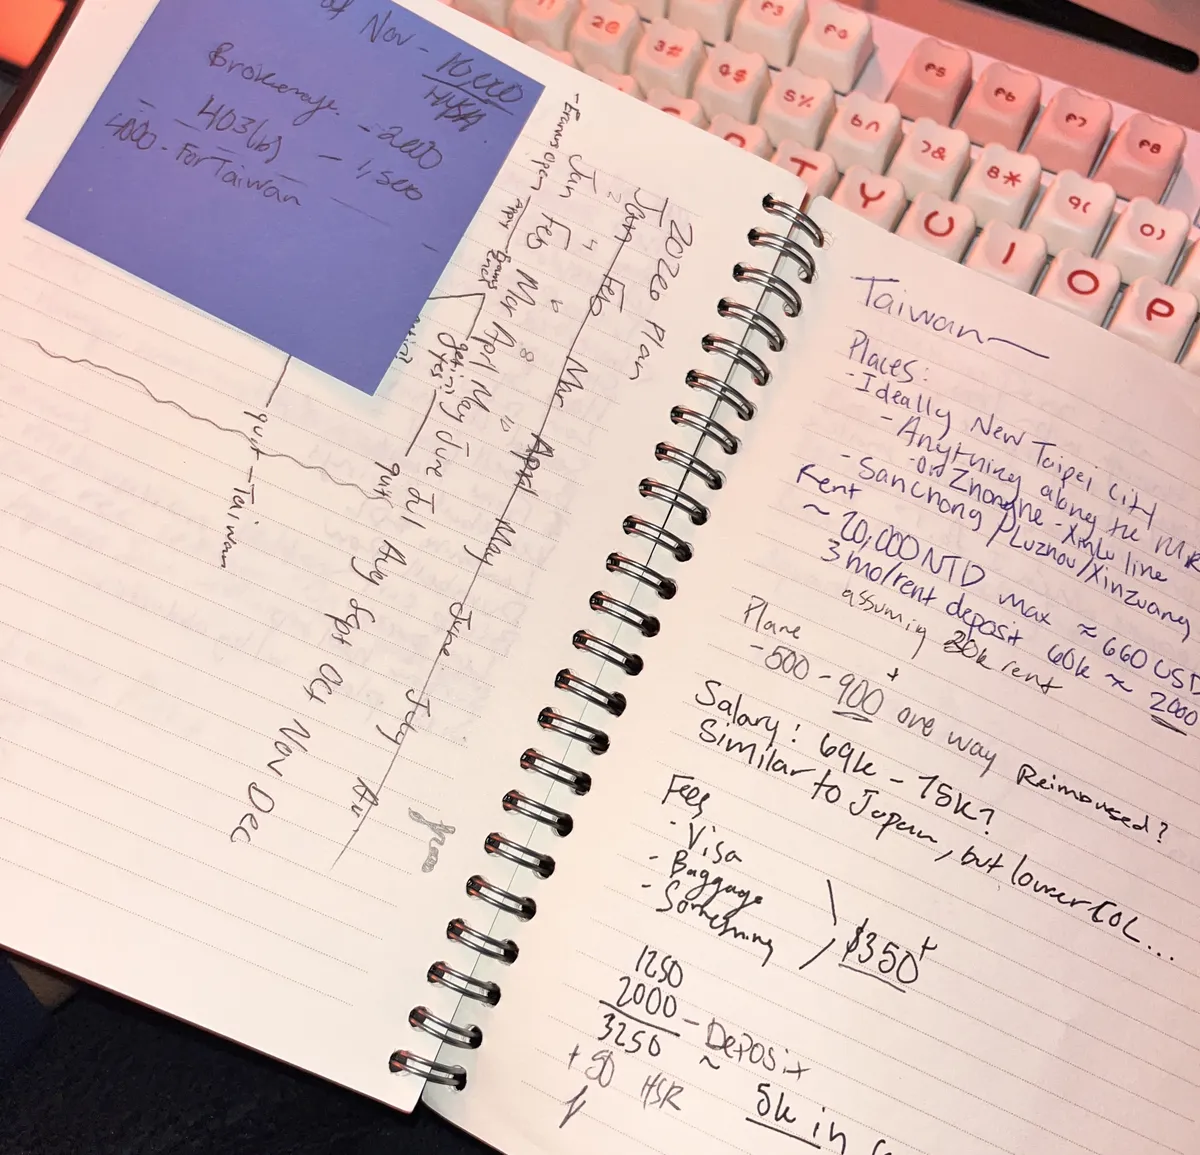 of Nov - 10,000
HYSA
Brokerage - 2000
- 403(b) - 1,500
4000 - For Taiwan
2026 Plan
Jan Feb Mar April May June July
2 4 6 8 10
Jan Feb Mar April May June Jul Aug Sept Oct Nov Dec
open
quit
quit - Taiwan
Taiwan
Places:
- Ideally New Taipei City
- Anything along the MR
- Old Zhonghe - Xinlu line
- Sanchong / Luzhou / Xinzuang
Rent
~ 20,000 NTD max ≈ 660 USD
3 mo/rent deposit 60k ≈ 2000
assuming 20k rent
Plane
- 500 - 900+ one way Reimbursed?
Salary: 69k - 75k?
Similar to Japan, but lower COL...
Fees
- Visa
- Baggage
- Something
$350+
1250
2000 - Deposit
3250 ~
+ 50 HSR
5k in
2@
3#
4$
5%
6^
7&
8*
9(
0)
F3
F5
F6
F7
F8
T
Y
U
I
O
P